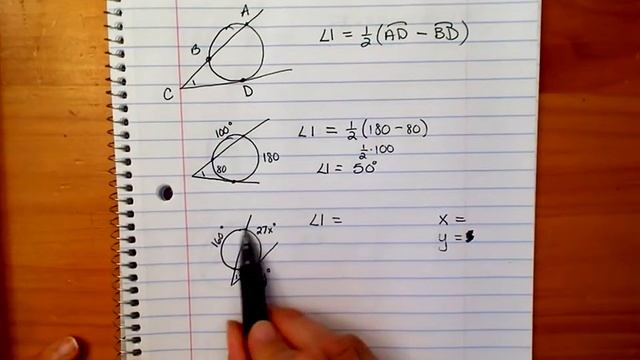 A
B
C
1
D
∠1 = ½(AD − BD)
100°
180
80
1
∠1 = ½(180 − 80)
½·100
∠1 = 50°
160°
27x°
∠1 =
x =
y =